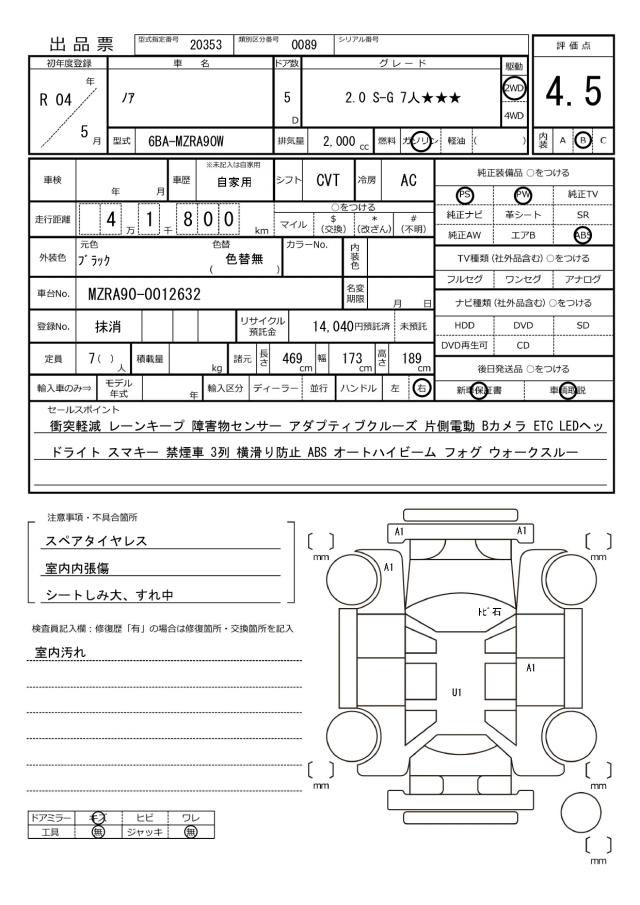 出品票
型式指定番号 20353 類別区分番号 0089 シリアル番号
評価点
4.5
初年度登録 車名 ドア数 グレード 駆動
R 04 年 5 月
ノア
5 D
2.0 S-G 7人★★★
2WD
4WD
型式 6BA-MZRA90W 排気量 2,000 cc 燃料 ガソリン 軽油 ( )
内装 A B C
車検 年 月 車歴 ※未記入は自家用 自家用 シフト CVT 冷房 AC
走行距離 4 万 1 千 8 0 0 km
○をつける
マイル $ (交換) * (改ざん) # (不明)
外装色 元色 ブラック 色替 ( 色替無 ) カラーNo. 内装色
車台No. MZRA90-0012632 名変期限 月 日
登録No. 抹消 リサイクル預託金 14,040円預託済 未預託
定員 7 ( ) 人 積載量 kg 諸元 長さ 469 cm 幅 173 cm 高さ 189 cm
輸入車のみ⇒ モデル年式 年 輸入区分 ディーラー 並行 ハンドル 左 右
純正装備品 ○をつける
PS PW 純正TV
純正ナビ 革シート SR
純正AW エアB ABS
TV種類 (社外品含む) ○をつける
フルセグ ワンセグ アナログ
ナビ種類 (社外品含む) ○をつける
HDD DVD SD
DVD再生可 CD
後日発送品 ○をつける
新車保証書 車輌取説
セールスポイント
衝突軽減 レーンキープ 障害物センサー アダプティブクルーズ 片側電動 Bカメラ ETC LEDヘッ
ドライト スマキー 禁煙車 3列 横滑り防止 ABS オートハイビーム フォグ ウォークスルー
注意事項・不具合箇所
スペアタイヤレス
室内内張傷
シートしみ大、すれ中
検査員記入欄：修復歴「有」の場合は修復箇所・交換箇所を記入
室内汚れ
A1 A1
mm mm
A1
トビ石
A1
U1
mm mm
mm
ドアミラー キズ ヒビ ワレ
工具 無 ジャッキ 無